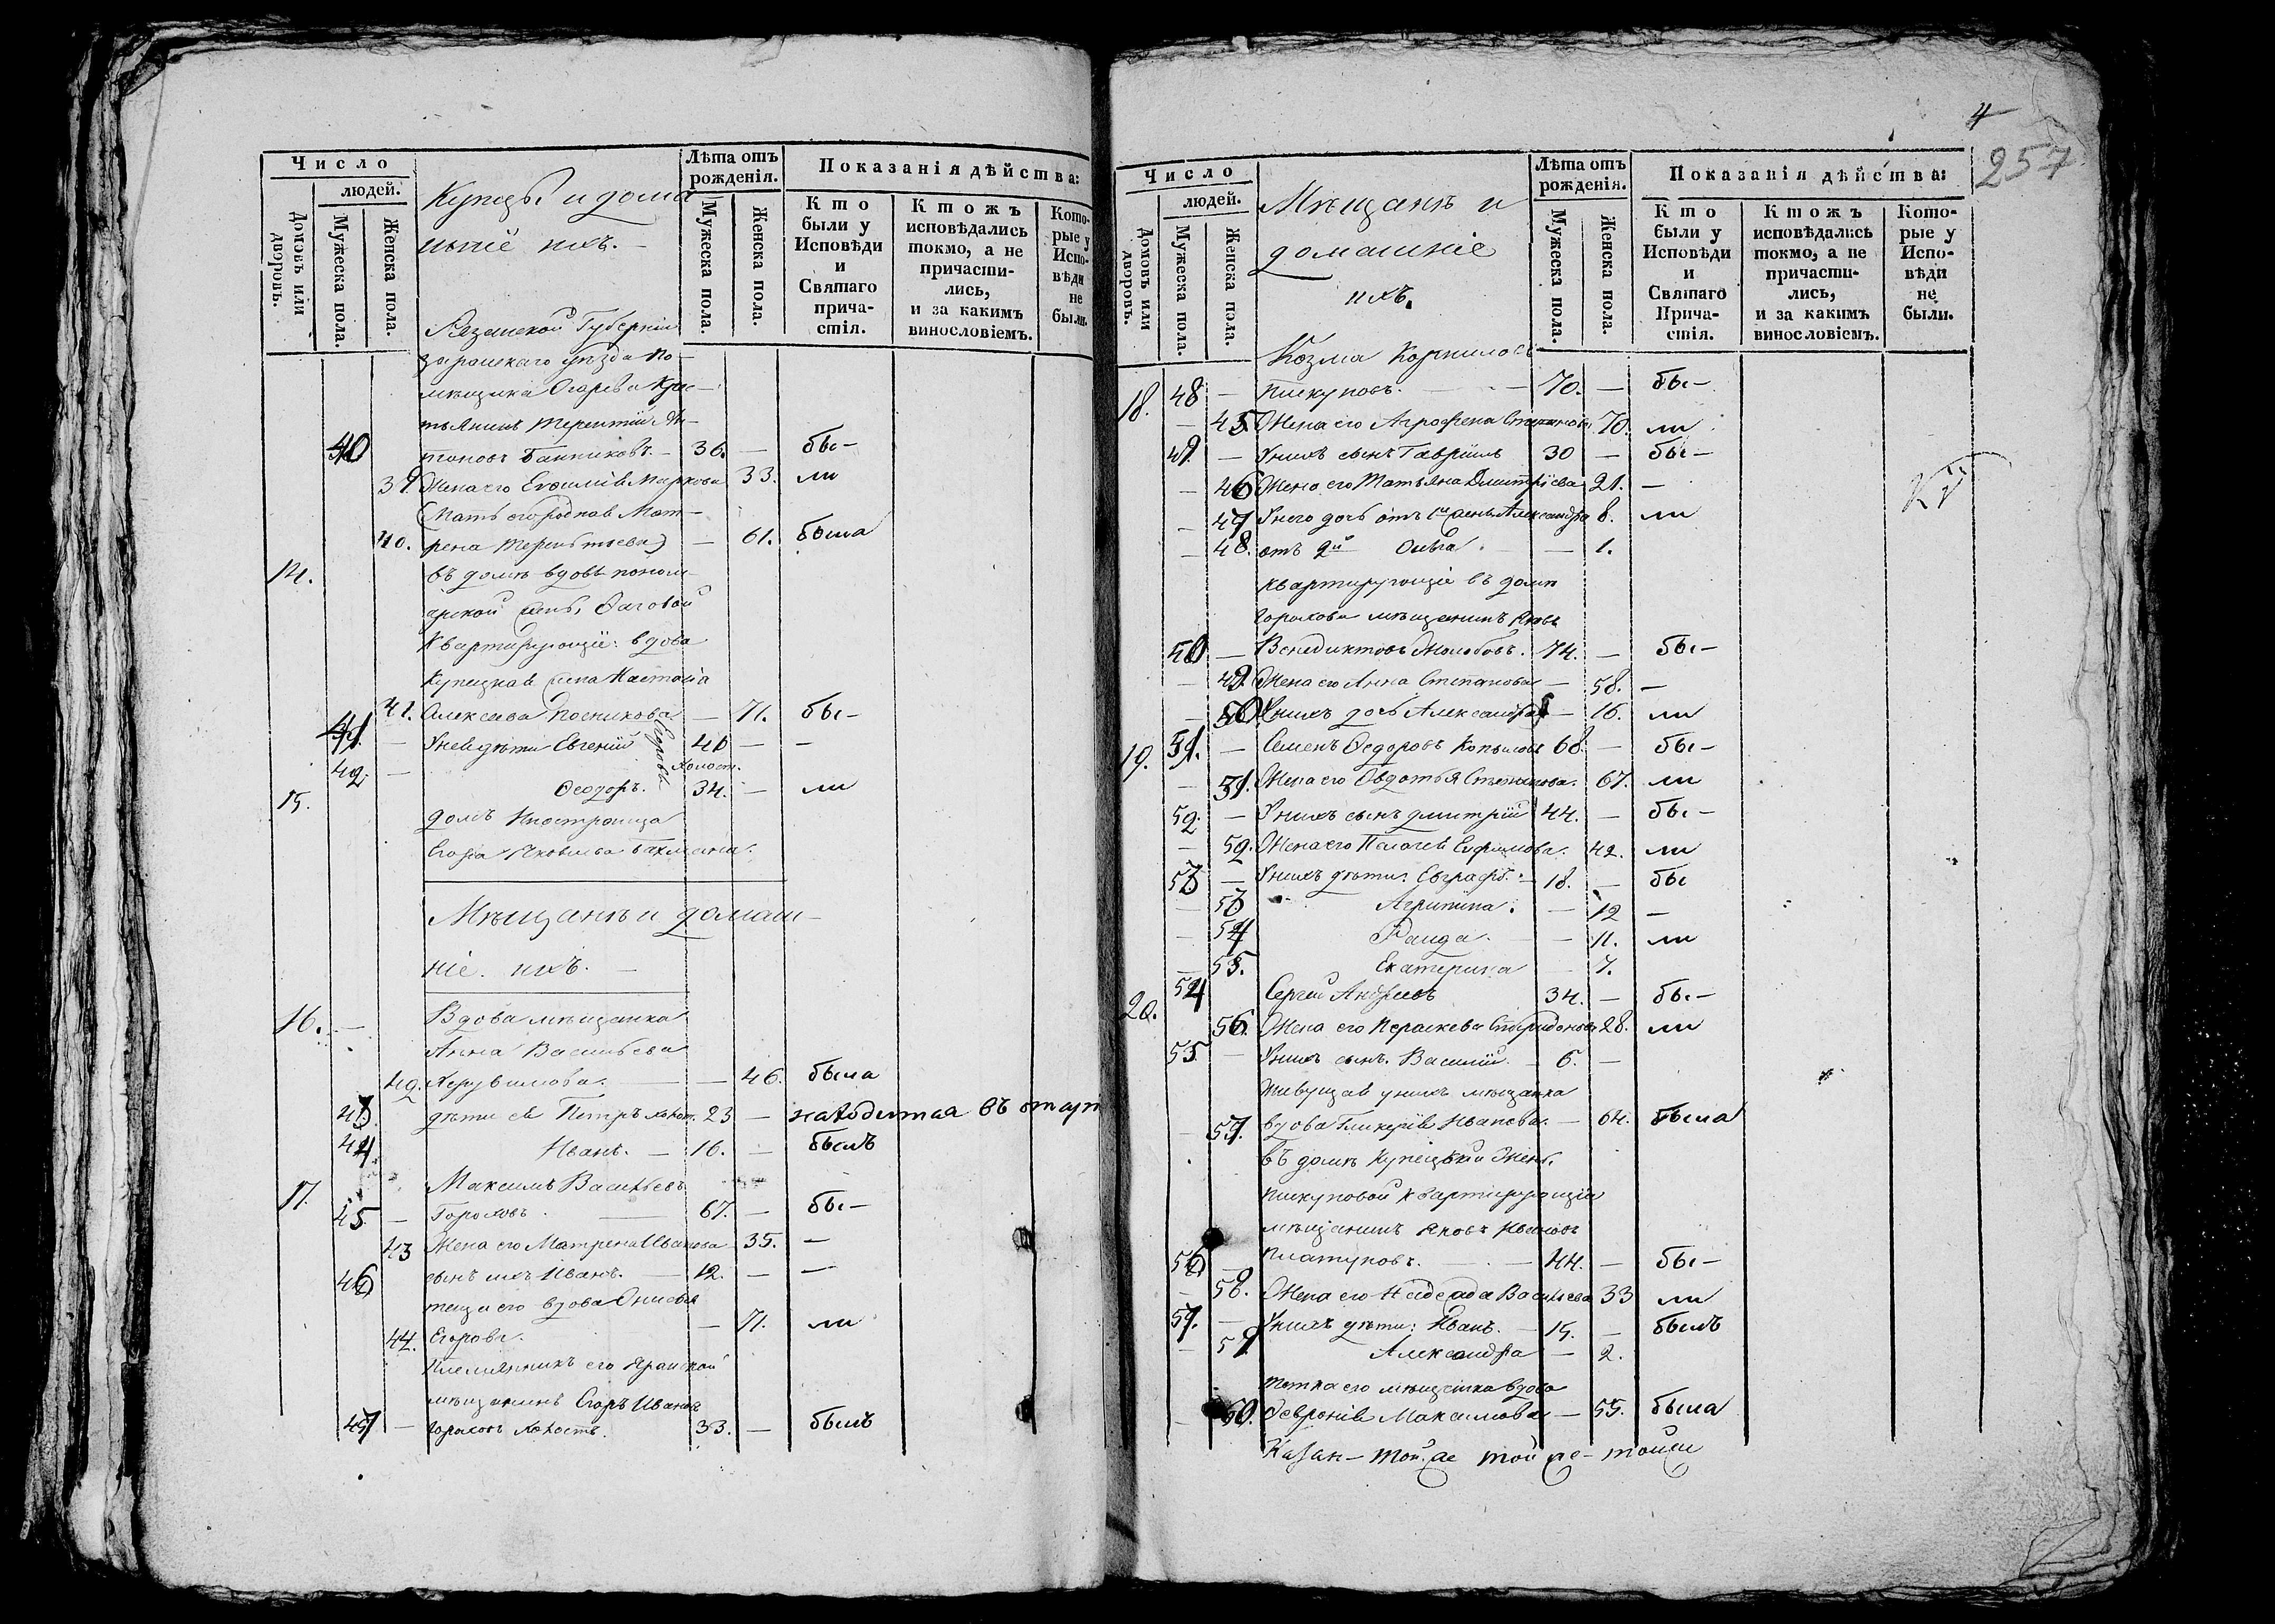 Число
людей.
Домовъ или дворовъ.
Мужеска пола.
Женска пола.
Купцы и дома
шніе ихъ.
Лѣта отъ рожденія.
Мужеска пола.
Женска пола.
Показанія дѣйства:
Кто были у Исповѣди и Святаго причастія.
Ктожъ исповѣдались токмо, а не причастились, и за какимъ винословіемъ.
Которые у Исповѣди не были.
Рязанской Губерніи
зарайскаго уѣзда по-
мѣщика Огарева Крес-
тьянинъ Терентій Ан-
40 тоновъ Банниковъ. 36. — бы-
39. Жена его Евфимія Маркова 33. ли
Мать его родная Мат-
40. рена Терентьева — 61. была
14. въ домѣ вдовы поном-
арской
Квартирующіе: вдова
Купецкая жена Настасья
41. Алексеева Посникова — 71. бы-
41. — У нея дѣти Евгеній Егоровъ 40 — —
холост.
42. — Феодоръ. 34. — ли
15. домъ Иностранца
Егора Яковлева Бахмана.
Мѣщане и домаш-
ніе ихъ.
16. — Вдова мѣщанка
Анна Васильева
42. Херувимова. — 46. была
43. дѣти ея Петръ холост. 23 — находится въ отлуч
44 Иванъ. — 16. — былъ
17. Максимъ Васильевъ
45 — Гороховъ. 67. — бы-
43 Жена его Матрена Иванова 35. —
46 сынъ ихъ Иванъ. 12. — —
теща его вдова Анисья
44. Егорова. — 71. ли
Племянникъ его Яранской
мѣщанинъ Егоръ Ивановъ
47 — Гороховъ холостъ. 33. — былъ
4
257
Число
людей.
Домовъ или дворовъ.
Мужеска пола.
Женска пола.
Мѣщане и
домашніе
ихъ.
Лѣта отъ рожденія.
Мужеска пола.
Женска пола.
Показанія дѣйства:
Кто были у Исповѣди и Святаго Причастія.
Ктожъ исповѣдались токмо, а не причастились, и за какимъ винословіемъ.
Которые у Исповѣди не были.
Козма Корниловъ
18. 48 — Пискуповъ. 70. — бы-
— 45 Жена его Агрофена Степанова 70. ли
49. — У нихъ сынъ Гавріилъ 30 — бы-
— 46 Жена его Татьяна Дмитріева 21. —
— 47 У него дочь отъ 1й жены Александра 8. ли
— 48. отъ 2й Ольга. — 1.
квартирующіе въ домѣ
Горохова мѣщанинъ Яковъ
50 — Венедиктовъ Жолобовъ. 74. — бы-
— 49. Жена его Анна Степанова — 58. —
— 50. У нихъ дочь Александра — 16. ли
19. 51. — Семенъ Федоровъ Копыловъ 68. — бы-
— 51. Жена его Овдотья Степанова. 67. ли
52. — У нихъ сынъ Дмитрій 44. — бы-
— 52. Жена его Палагея Ефимова. 42. ли
53 — У нихъ дѣти: Евграфъ. 18. — бы
— 53 Агрипина. — 12 —
— 54 Раида. — 11. ли
— 55. Екатерина — 7.
20. 54 Сергей Андреевъ 34. — бы-
56. Жена его Параскева Спиридонова 28. ли
55 — У нихъ сынъ Василій — 6. —
Живущая у нихъ мѣщанка
— 57. вдова Гликерія Иванова. — 64. была
Въ домѣ Купецкой Жены
Пискуповой квартирующій
мѣщанинъ Яковъ Ивановъ
56 — Платуновъ. — 44. — бы-
— 58. Жена его Надежда Васильева 33 ли
57. — У нихъ дѣти: Иванъ. — 15. — былъ
— 59 Александра — 2.
тетка его мѣщанка вдова
— 60. Февронія Максимова — 55. была